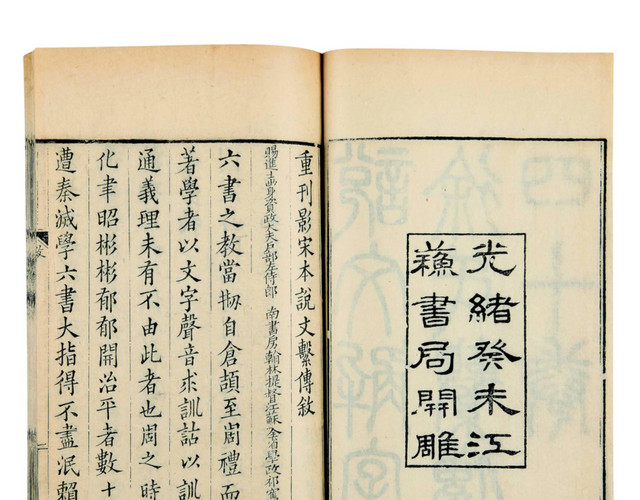 光緒癸未江
蘓書局開雕
重刊影宋本說文繫傳敘
賜進士出身資政大夫戶部左侍郎 南書房翰林提督江蘇全省學政祁寯
六書之教當刱自倉頡至周禮而
著學者以文字聲音求訓詁以訓
通義理未有不由此者也周之時
化聿昭彬彬郁郁開治平者數十
遭秦滅學六書大指得不盡泯賴